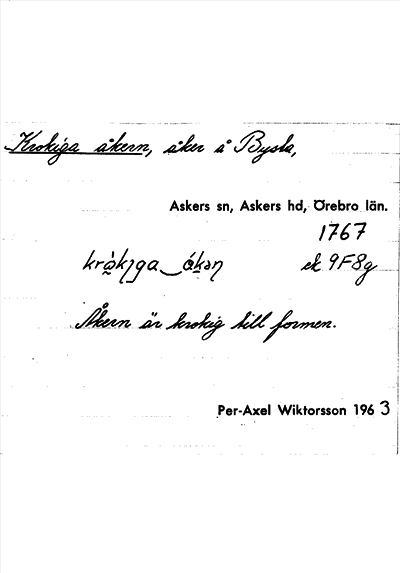 Krokiga åkern, åker å Bysta,
Askers sn, Askers hd, Örebro län.
1767
krò̤kıga‿ǻkəꞃ ek 9F8g
Åkern är krokig till formen.
Per-Axel Wiktorsson 1963